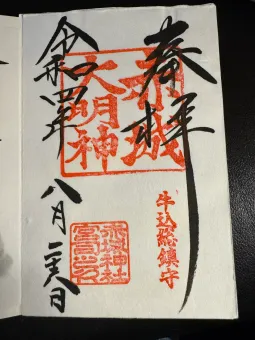 奉拝
赤城
大明神
牛込總鎮守
令和四年
八月
日
赤城神社
宮司之印